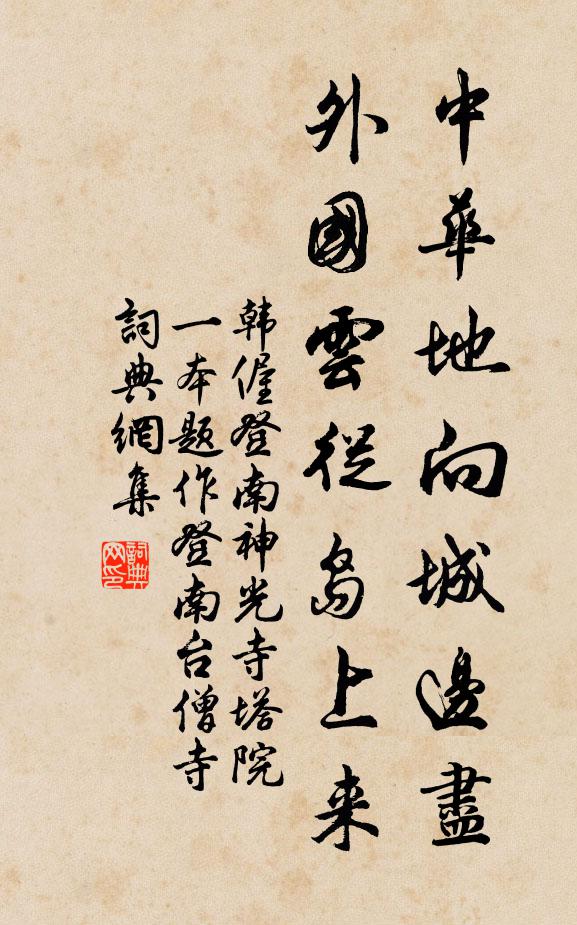 中華地向城邊盡
外國雲從島上来
韩偓登南神光寺塔院
一本题作登南台僧寺
詞典網集
詞典网印